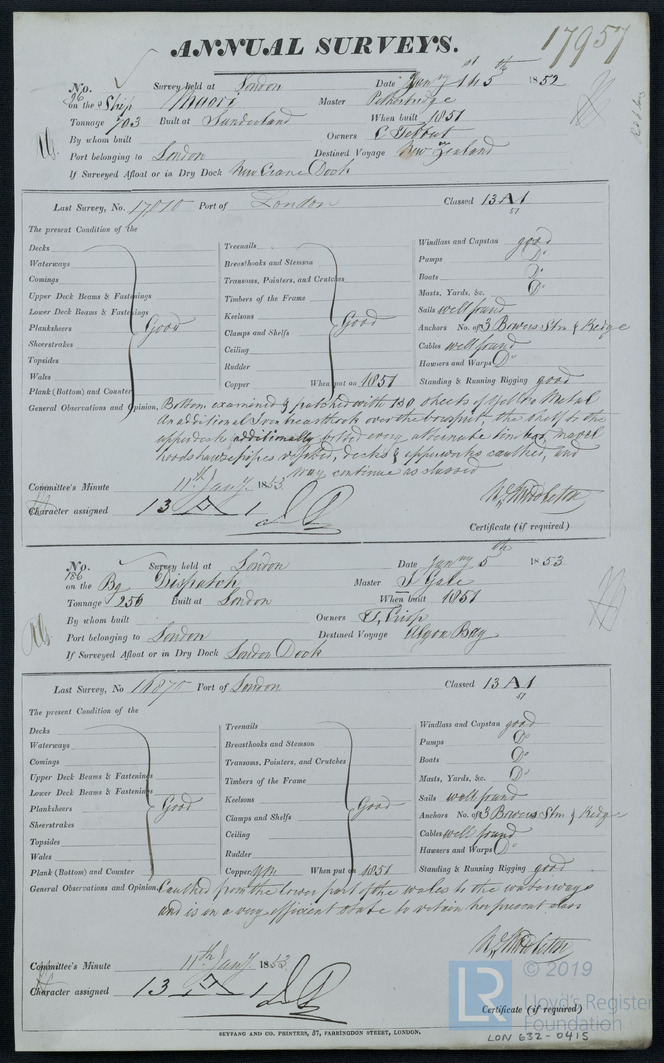 17957
ANNUAL SURVEYS.
No. 96 Survey held at London Date Jany 1st & 5th 1852
on the Ship Maori Master Petherbridge
Tonnage 703 Built at Sunderland When built 1851
By whom built Owners
Port belonging to London Destined Voyage New Zealand
If Surveyed Afloat or in Dry Dock New Crane Dock
Last Survey, No. 17010 Port of London Classed 13 A 1
51
The present Condition of the
Decks
Waterways
Comings
Upper Deck Beams & Fastenings
Lower Deck Beams & Fastenings
Planksheers
Sheerstrakes
Topsides
Wales
Plank (Bottom) and Counter
Good
Treenails
Breasthooks and Stemson
Transoms, Pointers, and Crutches
Timbers of the Frame
Keelsons
Clamps and Shelfs
Ceiling
Rudder
Copper When put on 1851
Good
Windlass and Capstan good
Pumps Do
Boats Do
Masts, Yards, &c. Do
Sails well found
Anchors No. of 3 Bowers Stm & Kedge
Cables well found
Hawsers and Warps Do
Standing & Running Rigging good
General Observations and Opinion, Bottom examined & patched with 130 sheets of Yellow Metal
An additional Iron breasthook over the bowsprit, the shelf to the
upperdeck additionally bolted every alternate timber, naval
hoods hawsepipes repaired, decks & upperworks caulked, and
may continue as classed
Committee's Minute 11th Jany 1853
Character assigned 13 A 1
Certificate (if required)
No. 186 Survey held at London Date Jany 5th 1853
on the Bg Dispatch Master J Gale
Tonnage 256 Built at London When built 1851
By whom built Owners T, Crisp
Port belonging to London Destined Voyage Algoa Bay
If Surveyed Afloat or in Dry Dock London Dock
Last Survey, No 16875 Port of London Classed 13 A 1
51
The present Condition of the
Decks
Waterways
Comings
Upper Deck Beams & Fastenings
Lower Deck Beams & Fastenings
Planksheers
Sheerstrakes
Topsides
Wales
Plank (Bottom) and Counter
Good
Treenails
Breasthooks and Stemson
Transoms, Pointers, and Crutches
Timbers of the Frame
Keelsons
Clamps and Shelfs
Ceiling
Rudder
Copper YM When put on 1851
Good
Windlass and Capstan good
Pumps Do
Boats Do
Masts, Yards, &c. Do
Sails well found
Anchors No. of 3 Bowers Stm & Kedge
Cables well found
Hawsers and Warps Do
Standing & Running Rigging good
General Observations and Opinion, Caulked from the lower part of the wales to the waterways
and is in a very efficient state to retain her present class
Committee's Minute 11th Jany 1853
Character assigned 13 A 1
Certificate (if required)
SEYFANG AND CO. PRINTERS, 57, FARRINGDON STREET, LONDON.
LR © 2019
Lloyd's Register
Foundation
LON 632-0415